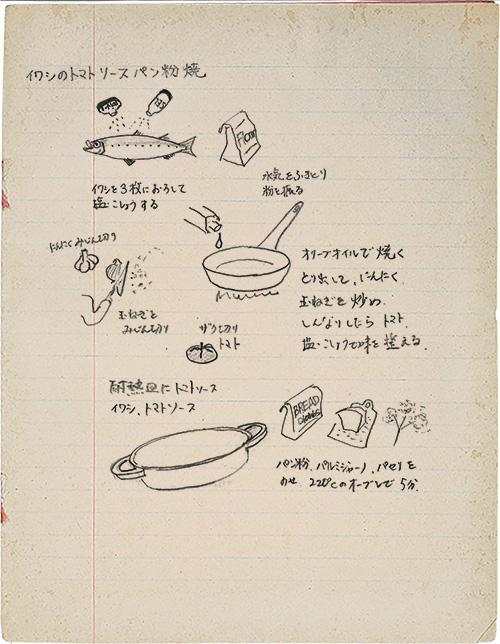 イワシのトマトソースパン粉焼
Flour
イワシを3枚におろして
塩こしょうする
水気をふきとり
粉を振る
にんにくみじん切り
玉ねぎを
みじん切り
ザク切り
トマト
オリーブオイルで焼く
とり出して、にんにく
玉ねぎを炒め
しんなりしたらトマト
塩・こしょうで味を整える。
耐熱皿にトマトソース
イワシ、トマトソース
BREAD
パン粉、パルミジャーノ、パセリを
のせ 220℃のオーブンで5分